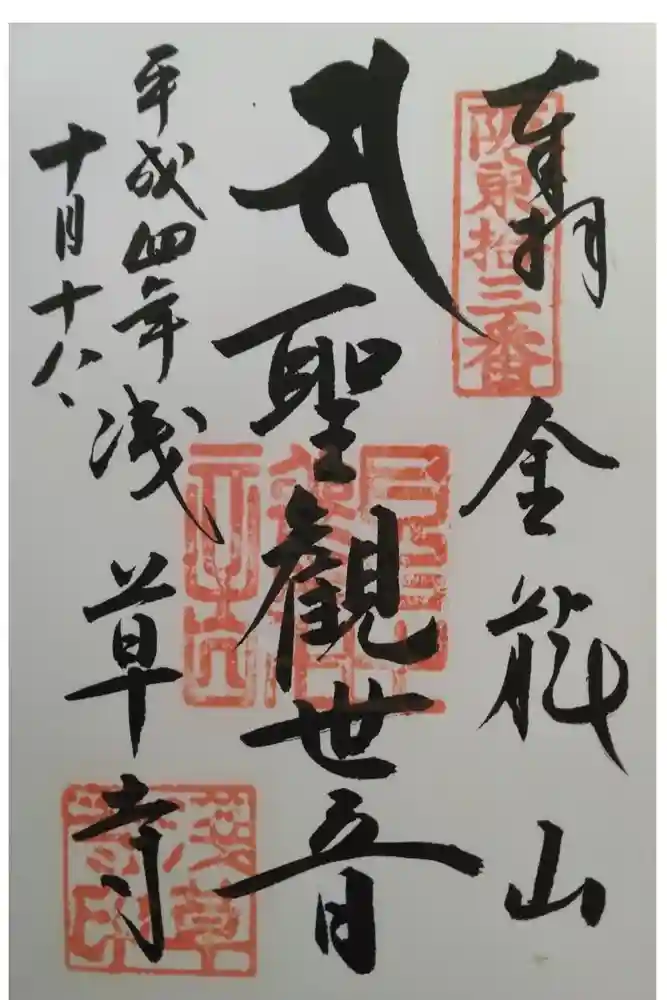 奉拝
金龍山
阪東拾三番
聖観世音
平成四年
十月十八
浅草寺
浅草寺印